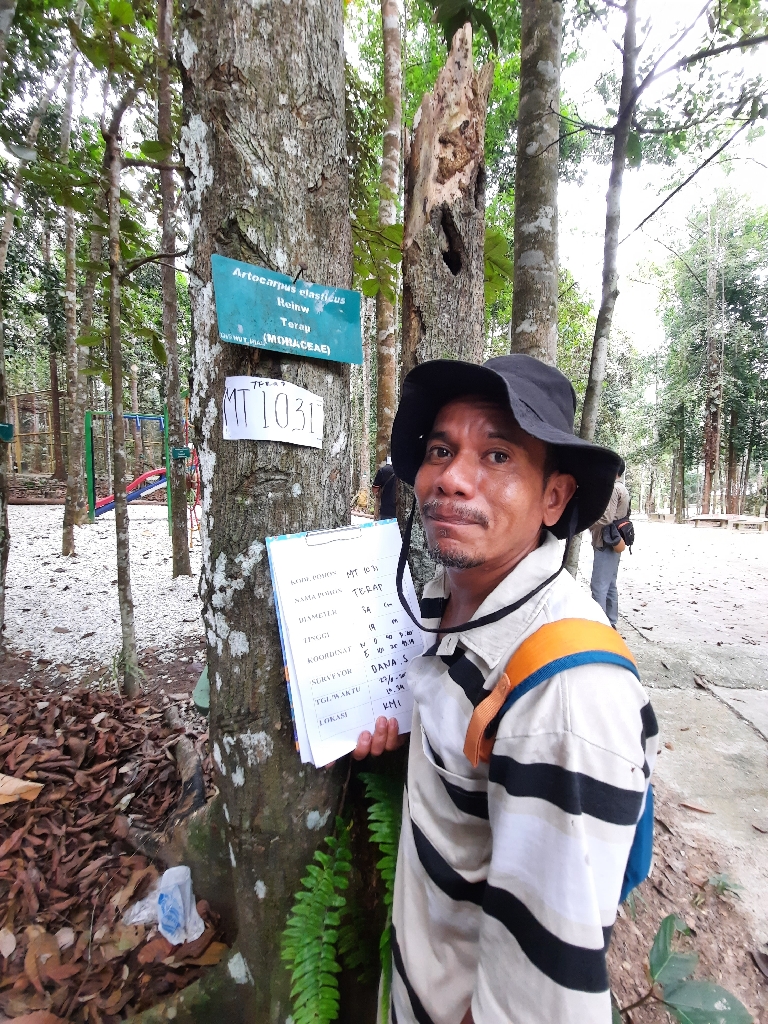 Artocarpus elasticus
Reinw
Terap
(MORACEAE)
TERAP
MT 1031
KODE POHON MT 1031
NAMA POHON TERAP
DIAMETER cm
TINGGI 19 m
KOORDINAT N 0
E
SURVEYOR DANA.S
TGL/WAKTU
LOKASI KM1